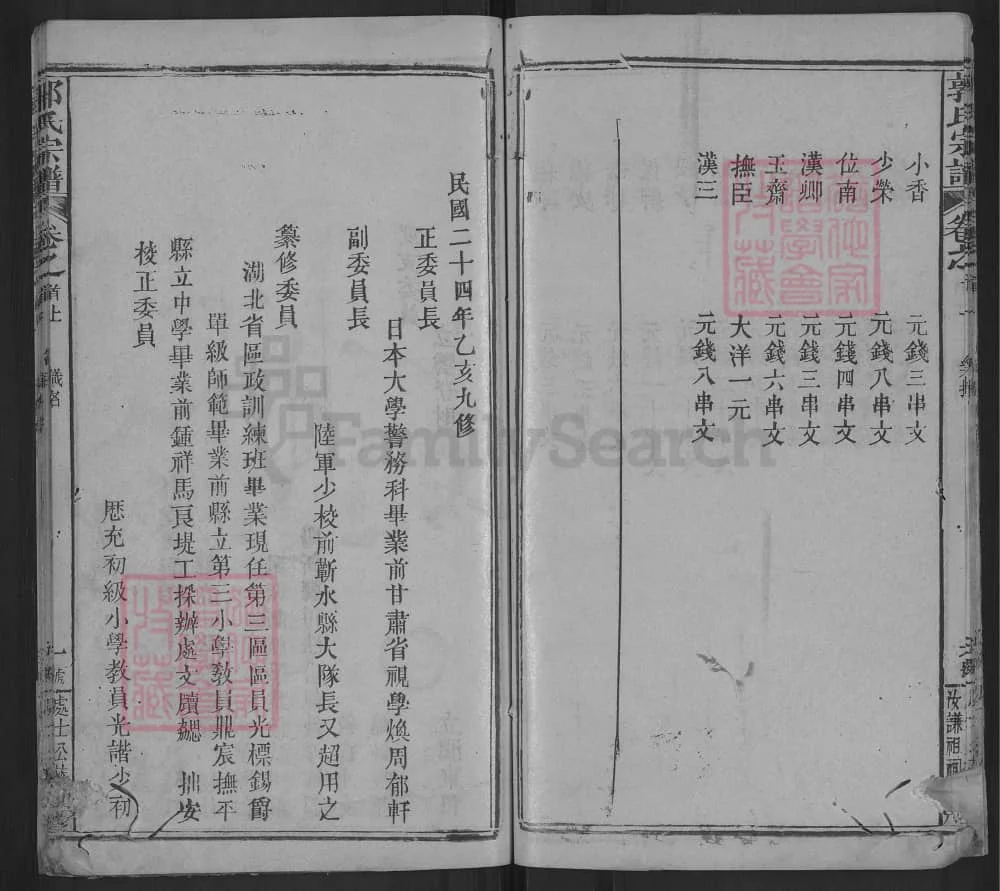 郭氏宗譜
卷之首
小香 元錢三串文
少榮 元錢八串文
位南 元錢四串文
漢卿 元錢三串文
玉齋 元錢六串文
撫臣 大洋一元
漢三 元錢八串文
汝謙祖祠
民國二十四年乙亥九修
正委員長
日本大學警務科畢業前甘肅省視學煥周郁軒
副委員長
陸軍少校前蘄水縣大隊長又超用之
纂修委員
湖北省區政訓練班畢業現任第三區區員光標錫爵
單級師範畢業前縣立第三小學敎員鼎宸撫平
縣立中學畢業前鍾祥馬良堤工採辦處文牘勰 拙安
校正委員
歷充初級小學教員光諧少初
郭氏宗譜
卷之首上
FamilySearch